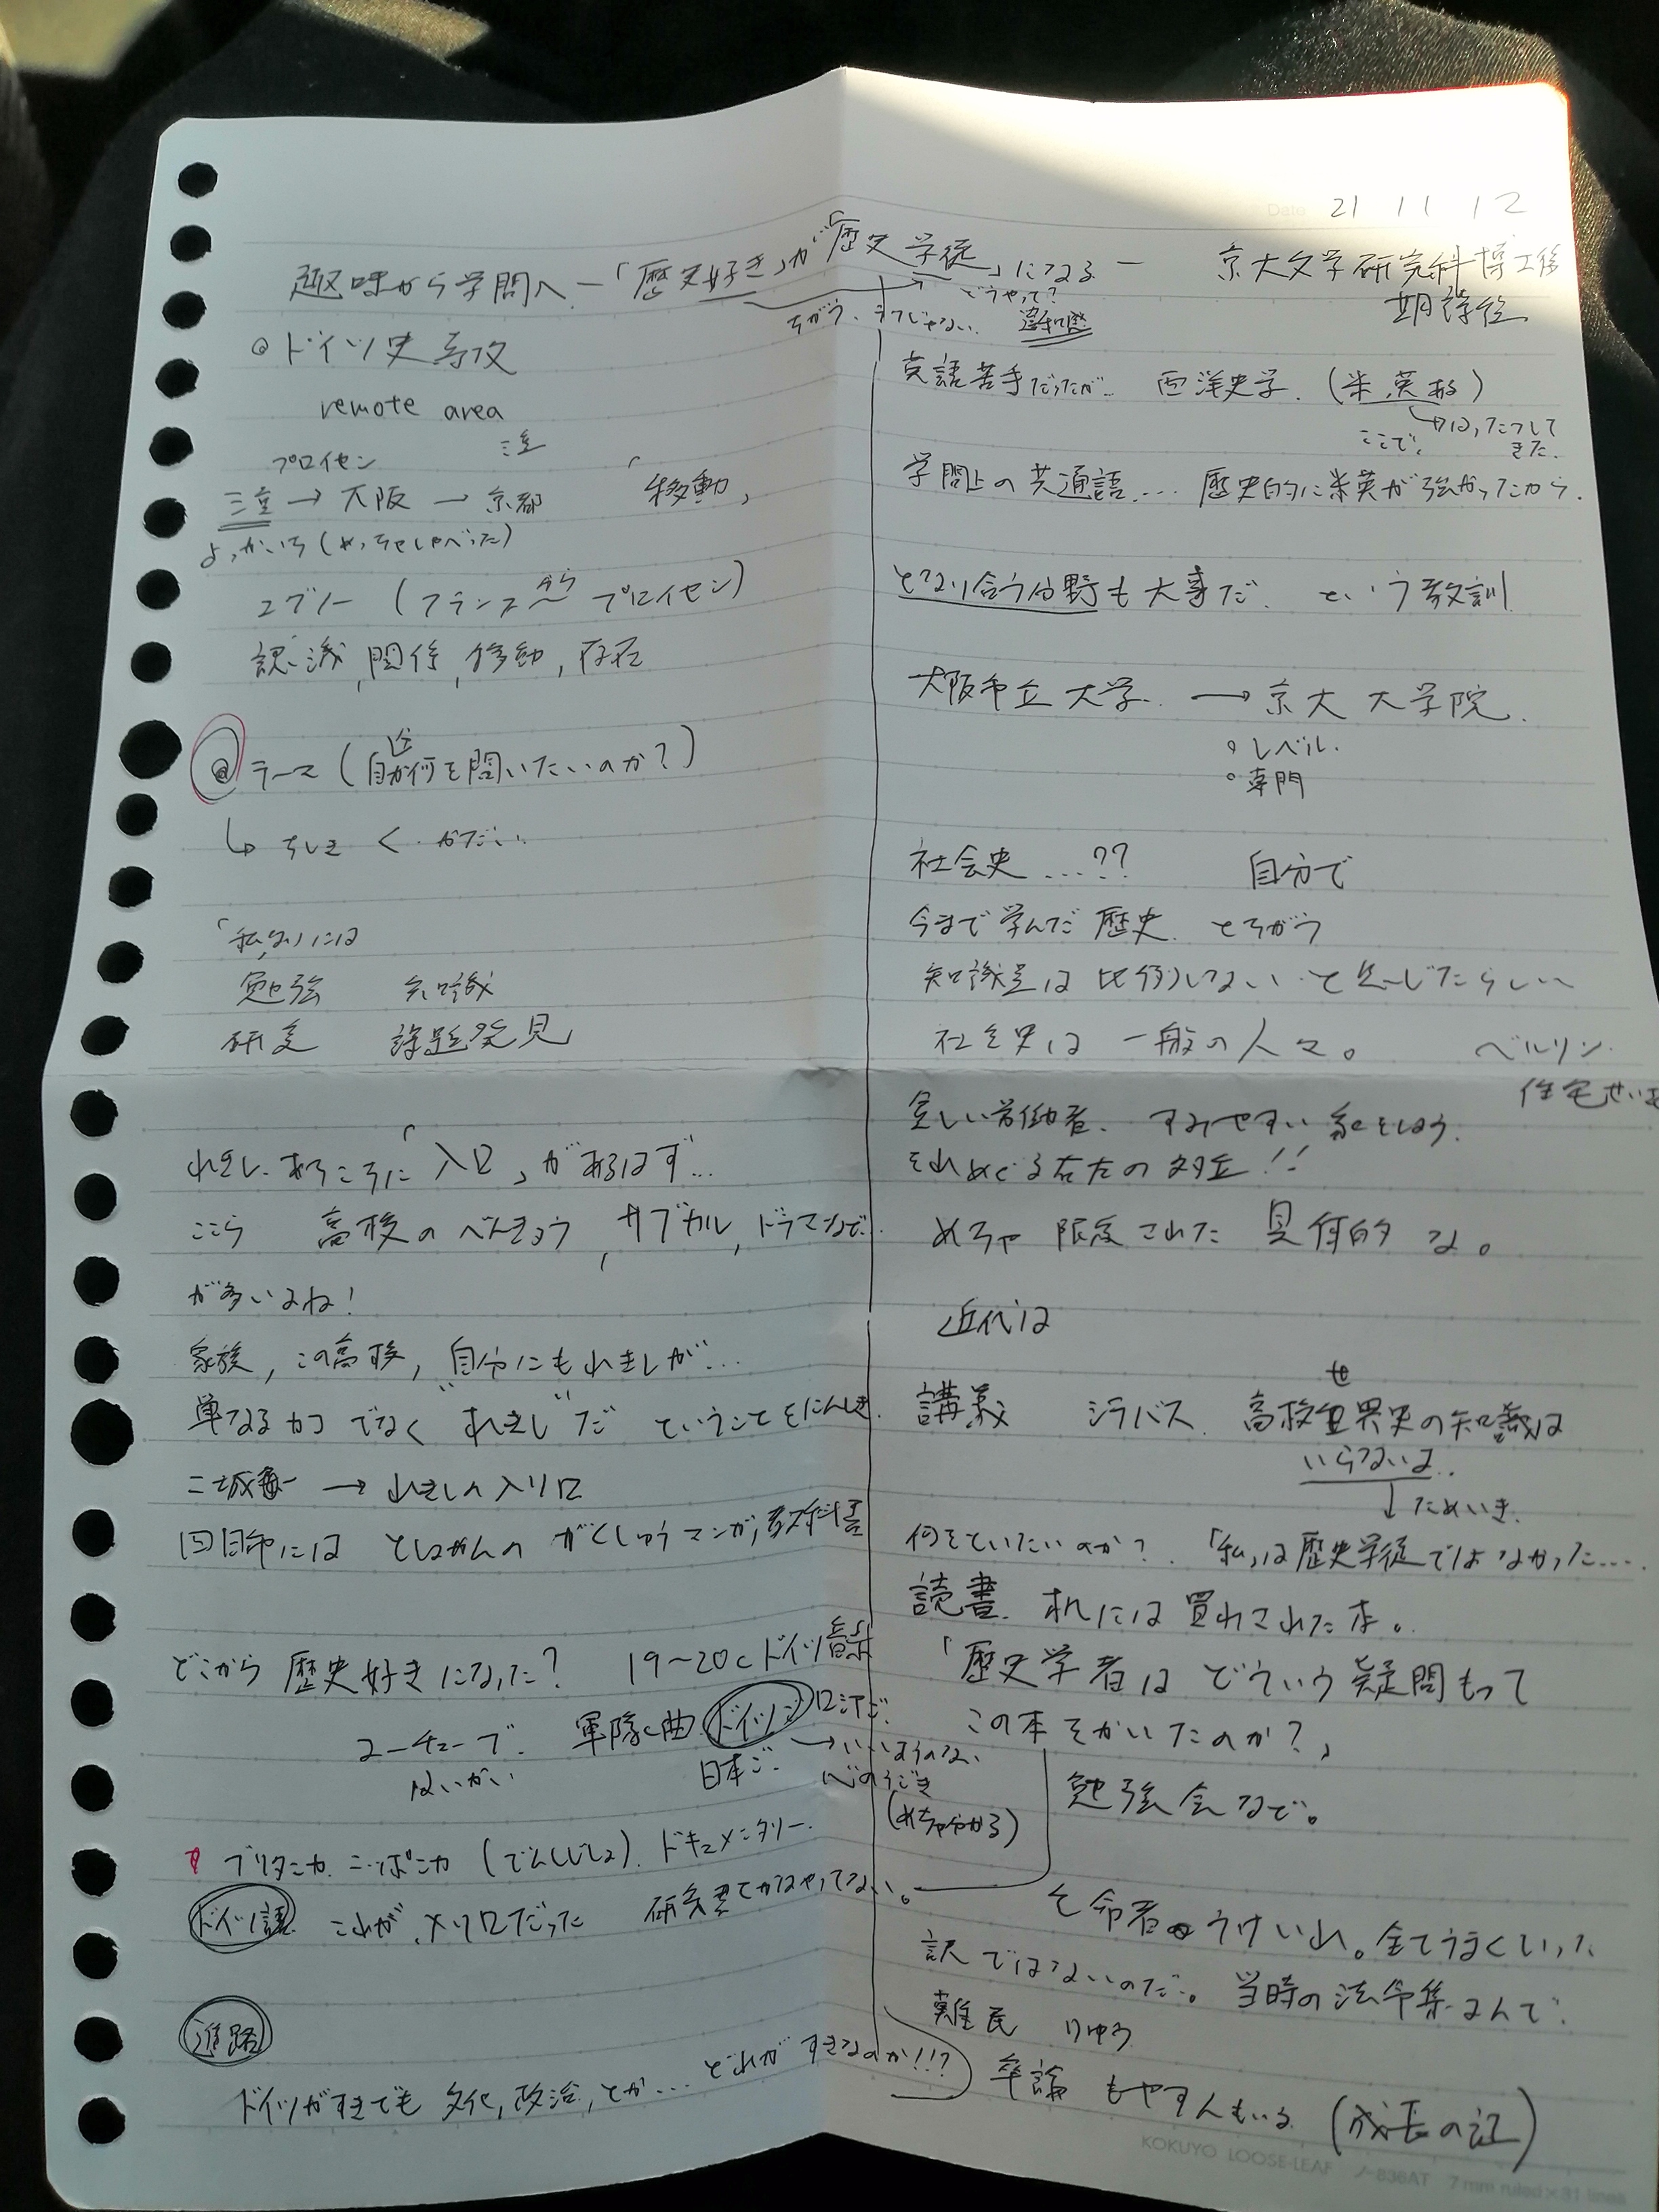 Date 21 11 12
趣味から学問へ ー「歴史好き」が「歴史学徒」になる ー 京大文学研究科博士後
期課程
どうやって?
ちがう、すじゃない 違和感
◎ドイツ史専攻
remote area
プロイセン 三重
三重 → 大阪 → 京都 「移動」
よっかいち(めっちゃしゃべった)
ユグノー (フランスから プロイセン)
認識, 関係, 移動, 存在
◎ テーマ (自分が何を問いたいのか?)
↳ ちしき < かだい
「私」には
勉強 知識
研究 課題発見」
れきし あちこちに「入口」があるはず…
ここら 高校のべんきょう, サブカル, ドラマなど
が多いよね!
家族, この高校, 自分にもれきしが…
単なるカコ でなく "れきし"だ ということをにんしき
二城 → れきしの入り口
には としょかんの がくしゅうマンガ, 教科書
どこから 歴史好きになった? 19〜20c ドイツ音楽
ユーチューブで 軍隊の曲 ドイツご ロシアご
日本ご
→いいようのない
心のうごき
(めちゃ分かる)
ブリタニカ ニッポニカ (でんしじしょ) ドキュメンタリー
ドイツ語 これが 入り口だった 研究書とかはやってない。
進路
ドイツがすきでも 文化, 政治, とか… どれが すきなのか!!?
英語苦手だったが… 西洋史学 (米, 英 ある)
ここで、
きた。
学問上の共通語… 歴史的に米英が強かったから
となり合う分野も大事だ という教訓
大阪市立大学 → 京大 大学院
○レベル
○専門
社会史 …?? 自分で
今まで学んだ歴史 とちがう
知識量は 比例しない と感じたらしい
社会史は 一般の人々。 ベルリン
住宅せい
貧しい労働者 すみやすい 家をしよう
それめぐる右左の対立!!
めちゃ 限定された 具体的 な。
近代は
講義 シラバス 高校世界史の知識は
せ
いらないよ..
↓ ためいき
何をといたいのか? 「私」は歴史学徒ではなかった…
読書 机には 買わされた本。
「歴史学者は どういう疑問もって
この本をかいたのか?」
勉強会など。
亡命者のうけいれ。全てうまくいった
訳ではないのだ。 当時の法令集よんで
難民 りゅう
卒論 もやす人もいる (成長の証)
KOKUYO LOOSE-LEAF ノ-836AT 7 mm ruled×31 lines